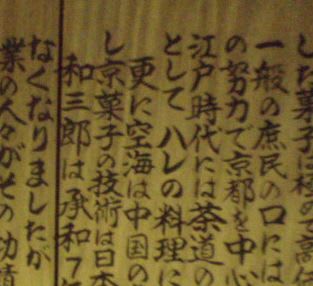 した菓子は極めて高価
一般の庶民の口には
の努力で京都を中心
江戸時代には茶道の
としてハレの料理に
更に空海は中国の
し京菓子の技術は日本
和三郎は承和7年
なくなりましたが
業の人々がその功績